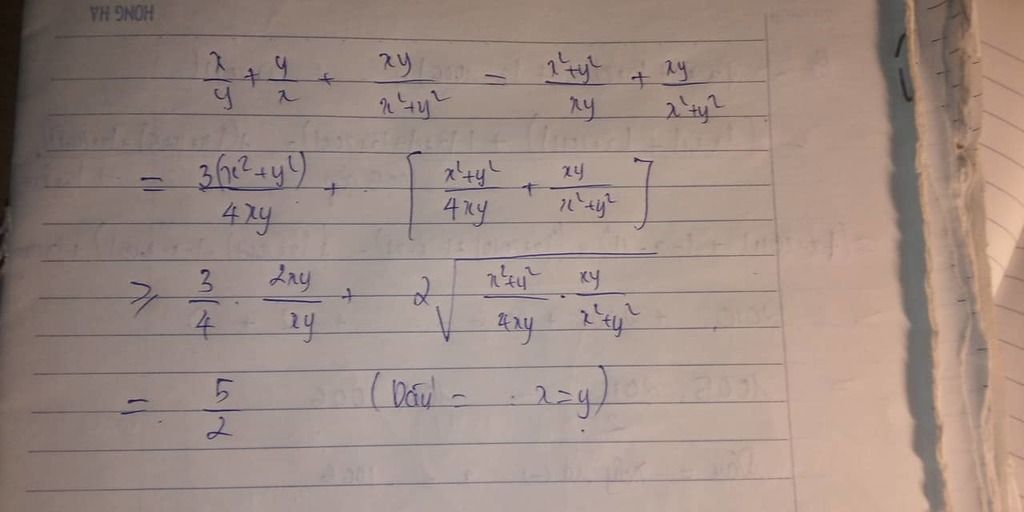 HONG HA
x/y + y/x + xy/(x²+y²) = (x²+y²)/xy + xy/(x²+y²)
= 3(x²+y²)/4xy + [(x²+y²)/4xy + xy/(x²+y²)]
≥ 3/4 . 2xy/xy + 2√((x²+y²)/4xy . xy/(x²+y²))
= 5/2 (Dấu = . x=y)